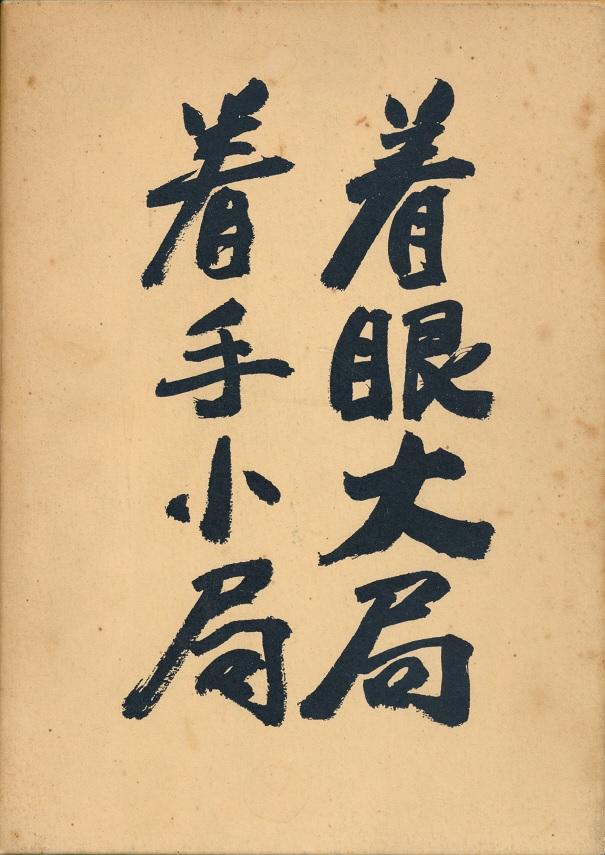 着眼大局
着手小局